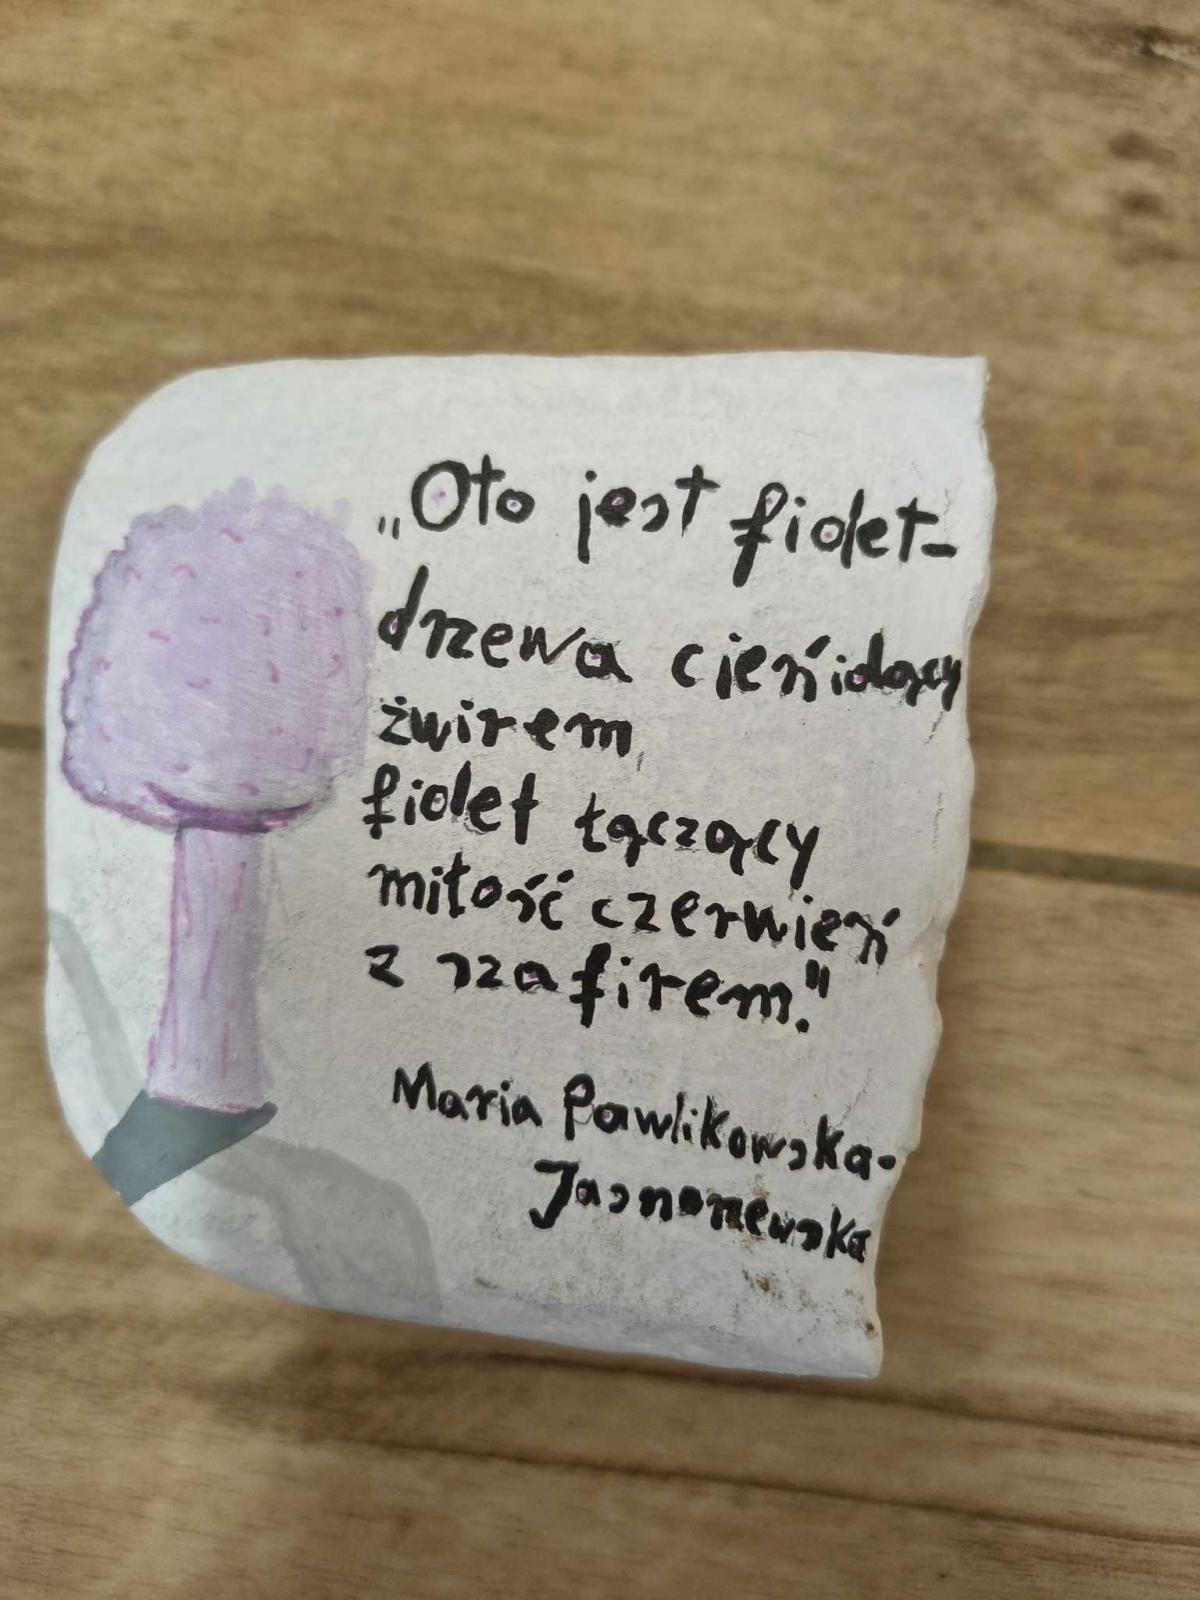 „Oto jest fiolet-
drzewa cień idący
żwirem,
fiolet łączący
miłość czerwień
z szafirem."
Maria Pawlikowska-
Jasnorzewska